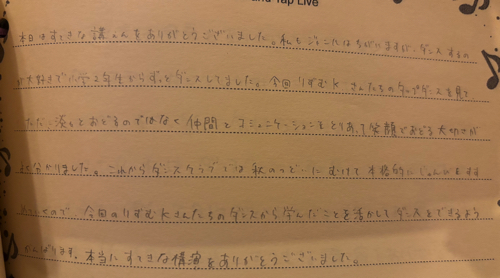 and Tap Live
本日はすてきな講演をありがとうございました。私もジャンルはちがいますが、ダンスするの
が大好きで小学2年生からずっとダンスしてました。今回りずむKさんたちのタップダンスを見て
ただ、淡々とおどるのではなく仲間とコミュニケーションをとりあって笑顔でおどる大切さが
分かりました。これからダンスクラブでは秋のつどいにむけて本格的に
ので、今回のりずむKさんたちのダンスから学んだことを活かしてダンスをできるよう
がんばります。本当にすてきな講演をありがとうございました。